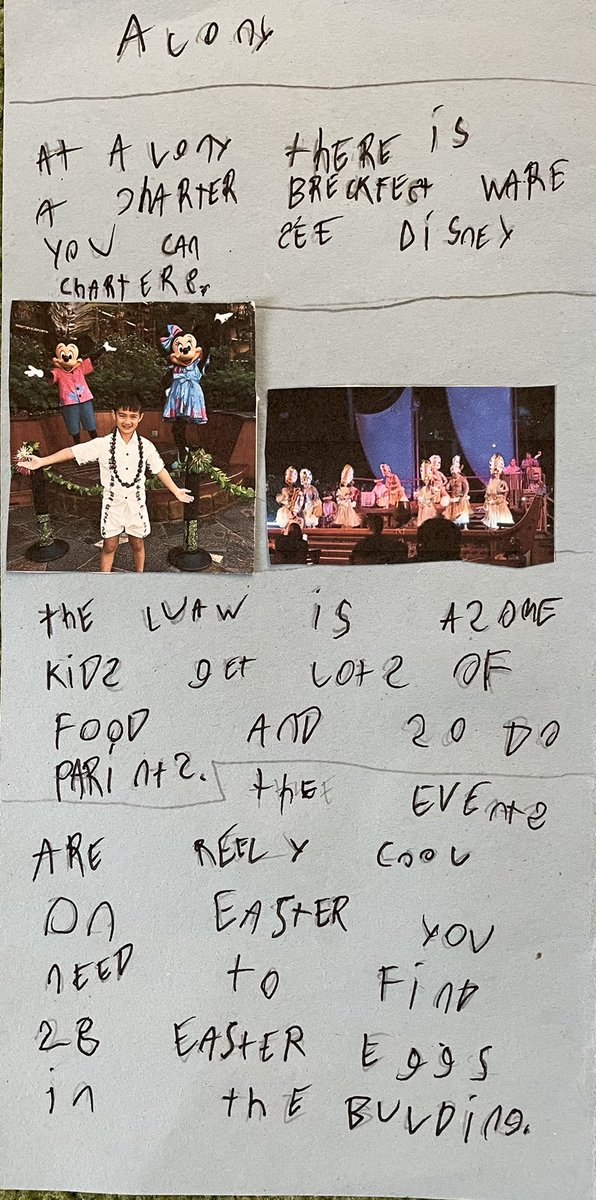 ALONY
At ALONY thERE is
A ChARtER BRECKFEST WARE
YOU CAn SEE DiSnEY
ChARtERS.
thE LUAW iS AZOME
KiDS gEt LOtS OF
FOOD AnD SO DO
PARintS. thE EVEntS
ARE REELY COOL
On EAStER YOU
nEED tO FinD
28 EAStER EggS
in thE BULDing.